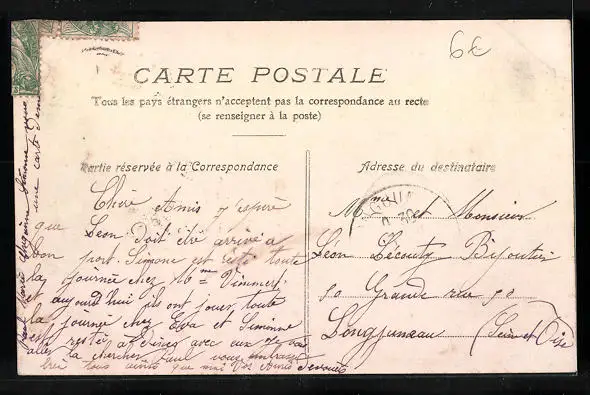 6€
CARTE POSTALE
Tous les pays étrangers n'acceptent pas la correspondance au recto
(se renseigner à la poste)
Partie réservée à la Correspondance
Adresse du destinataire
Chère Amis j'espère
que Léon Doit être arrivé a
bon port. Simone est resté toute
la journée chez Mme
et aujourd'hui ils ont jouer toute
la journée chez Eva et Simonne
est restée a Diner avec eux je vais
aller la chercher Paul vous embrasse
bien tous ainsi que vos Amis Devoués
une carte
Mme et Monsieur
Léon Lécouty Bijoutier
90 Grande rue 90
Longjumeau (Seine et Oise